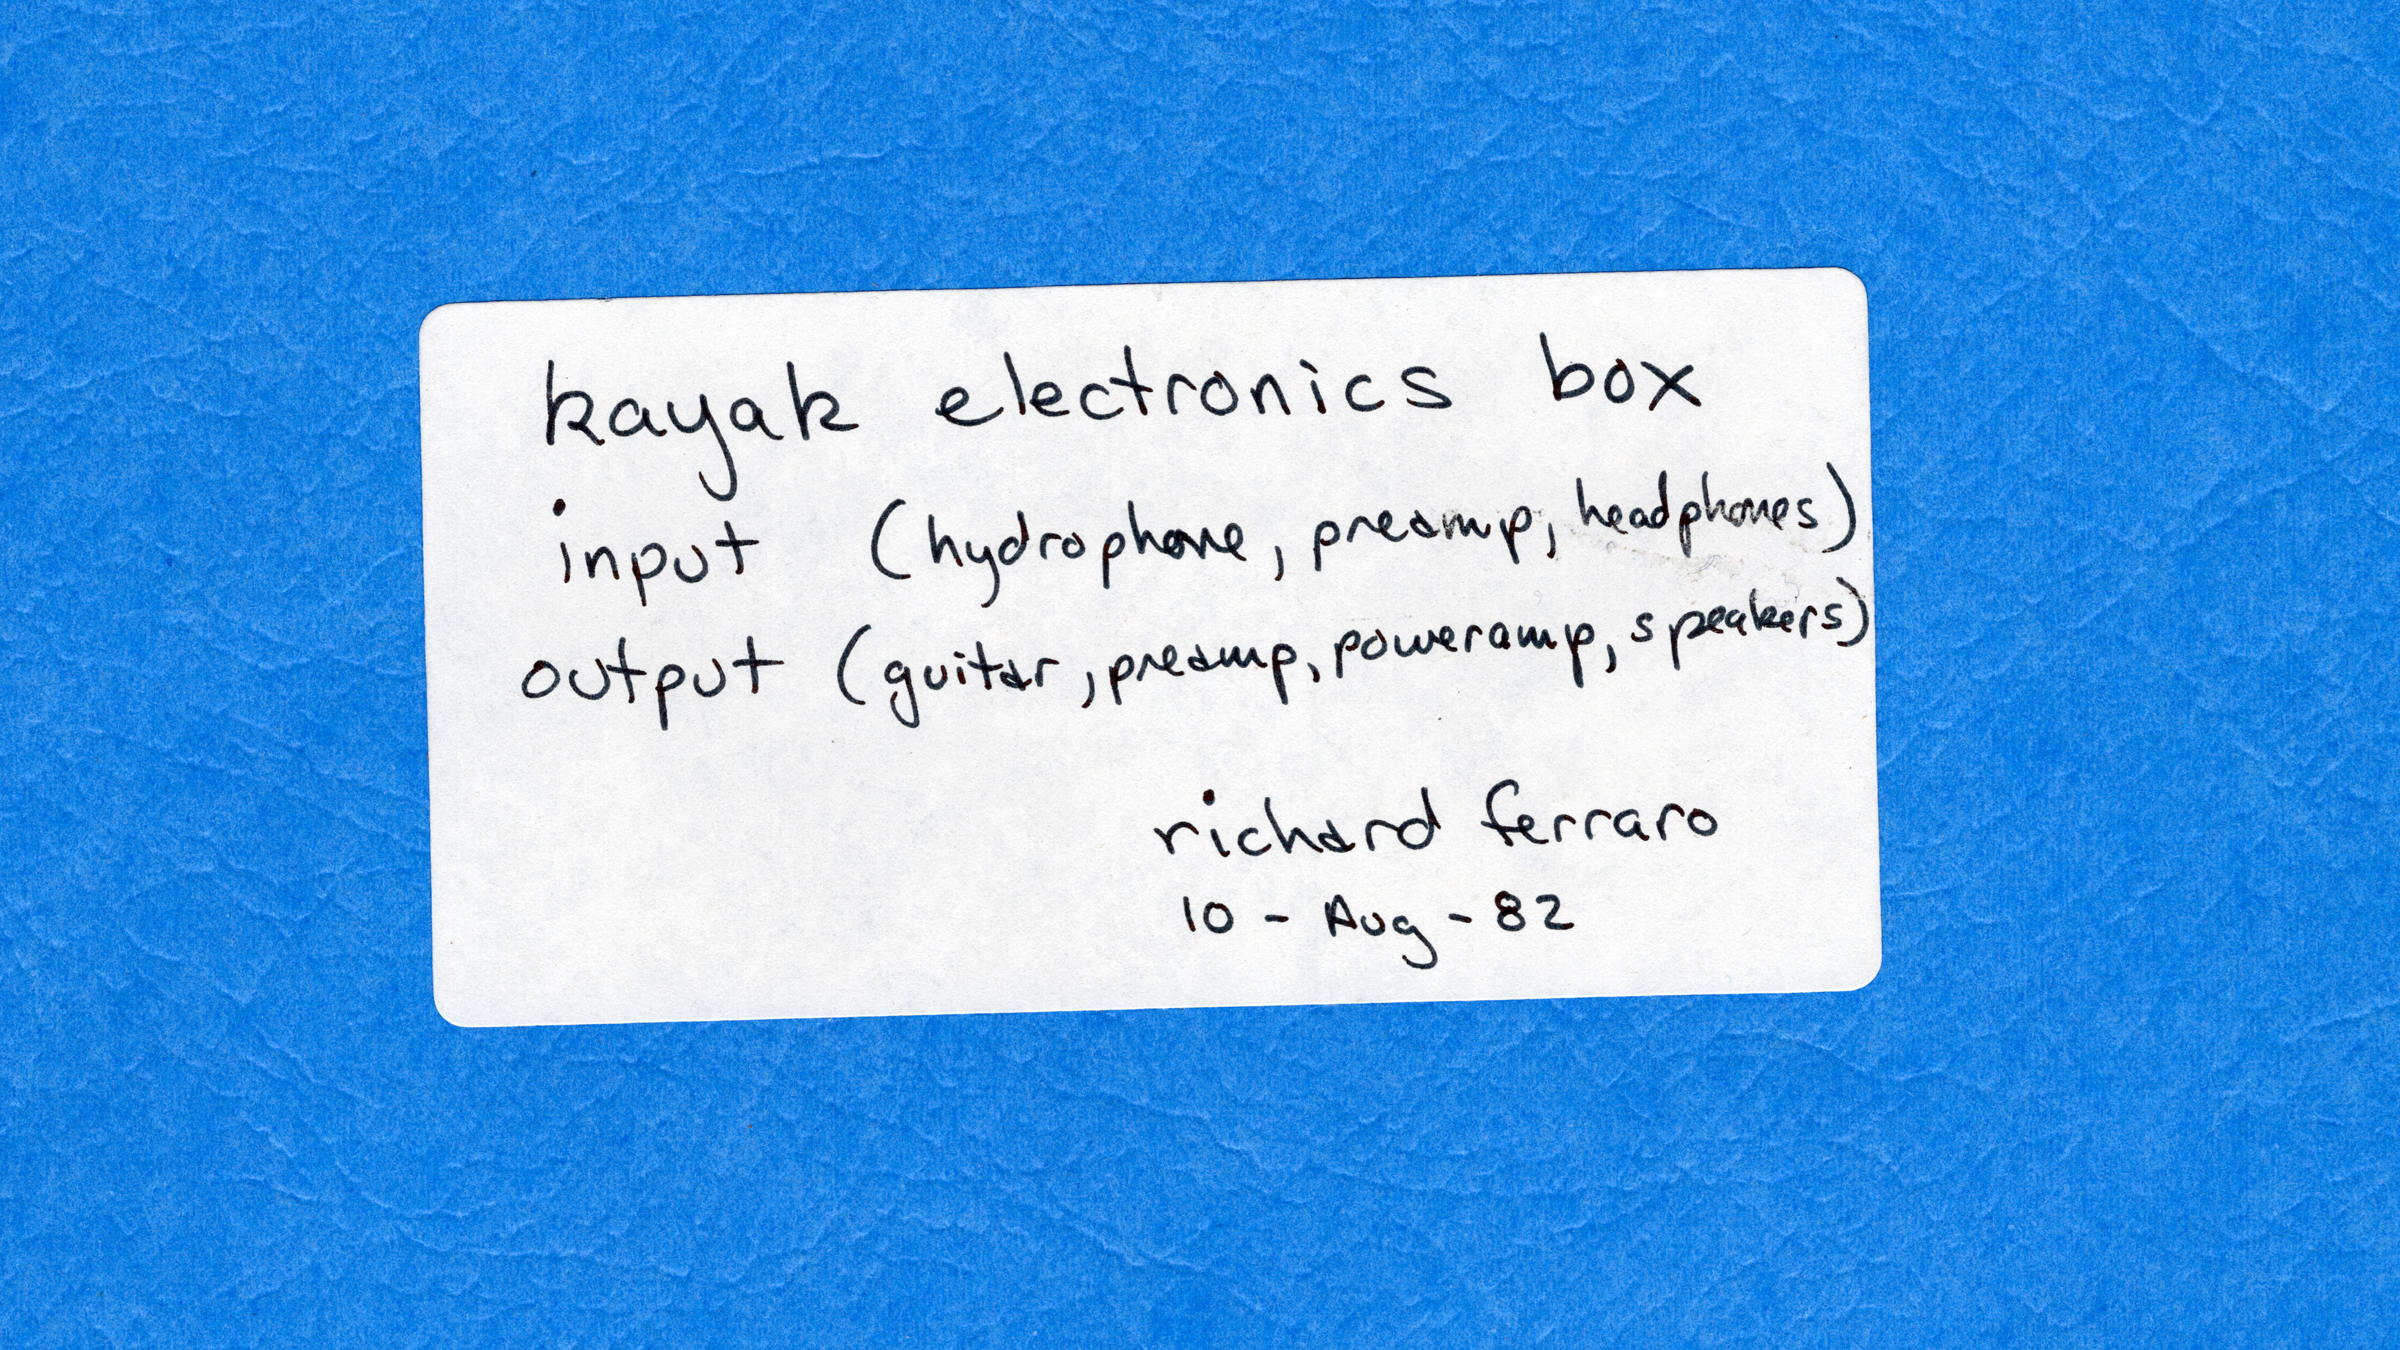 kayak electronics box
input (hydrophone, preamp, headphones)
output (guitar, preamp, poweramp, speakers)
richard ferraro
10 - Aug - 82